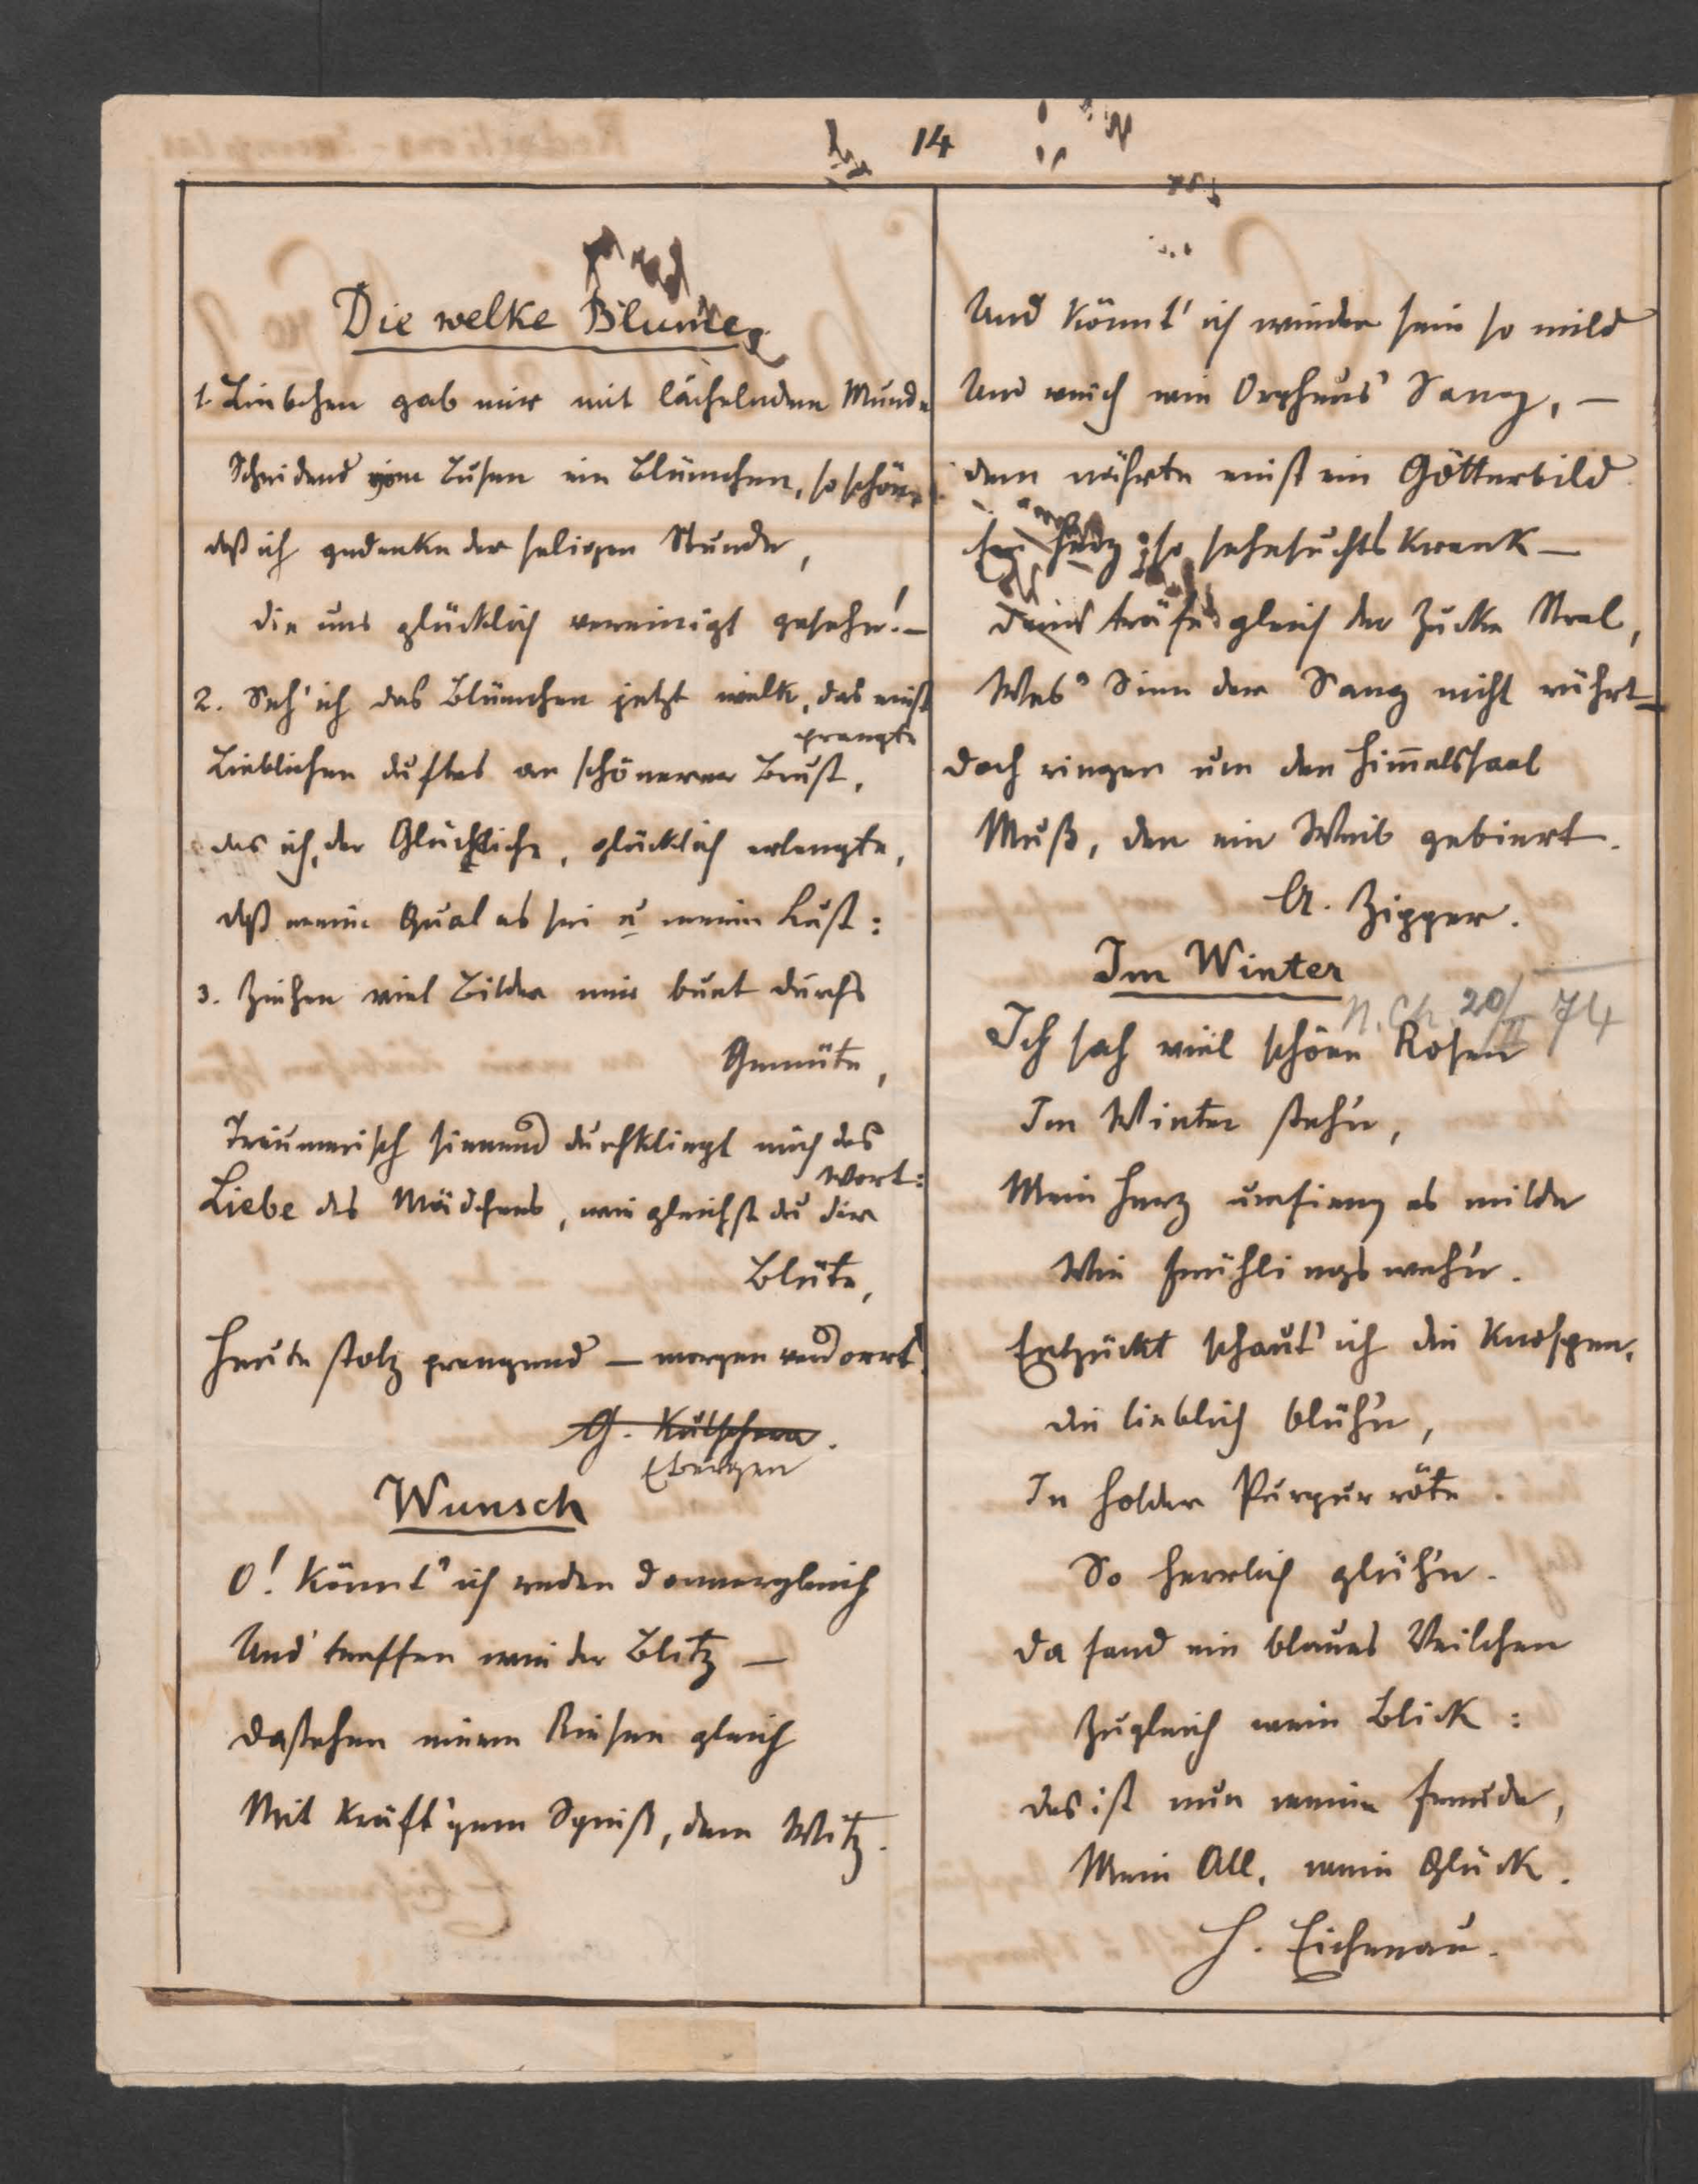 14
Die welke Blume.
1. Liebchen gab mir mit lächelndem Munde
Scheidend vom Busen ein Blümchen, so schön,
daß ich gedenke der seligen Stunde,
die uns glücklich vereinigt gesehn! –
2. Seh' ich das Blümchen jetzt welk, das einst
prangte
Lieblichen duftes an schönerer Brust,
das ich, der Glückliche, glücklich erlangte,
daß meine Qual es sei u meine Lust:
3. Ziehen viel Bilder mir bunt durchs
Gemüte,
Träumerisch sinnend durchklingt mich das
Wort:
Liebe des Mädchens, wie gleichst du der
Blüte,
Heute stolz prangend – morgen verdorrt!
G. Kutschera.
Wunsch
O! könnt' ich reden donnergleich
Und treffen wie der Blitz –
dastehen einem Riesen gleich
Mit kräft'gem Spieß, dem Witz.
Und könnt' ich wieder sein so mild
Und weich wie Orpheus' Sang, –
dem nährte einst ein Götterbild
Herz so sehnsuchtskrank –
träfe gleich der Zucke Stral,
Wes' Sinn der Sang nicht rührt –
doch ringen um den Him̅elssaal
Muß, den ein Weib gebiert.
A. Zipper.
Im Winter
N. Ch. 20/II 74
Ich sah viel schöne Rosen
Im Winter stehn,
Mein Herz umfieng es milde
Wie Frühlingswehn.
Entzückt schaut' ich die Knospen,
die lieblich blühn,
In holder Purpurröte
So herrlich glühn.
da fand ein blaues Veilchen
Zugleich mein Blick:
das ist nun meine Freude,
Mein All, mein Glück.
H. Eichenau.